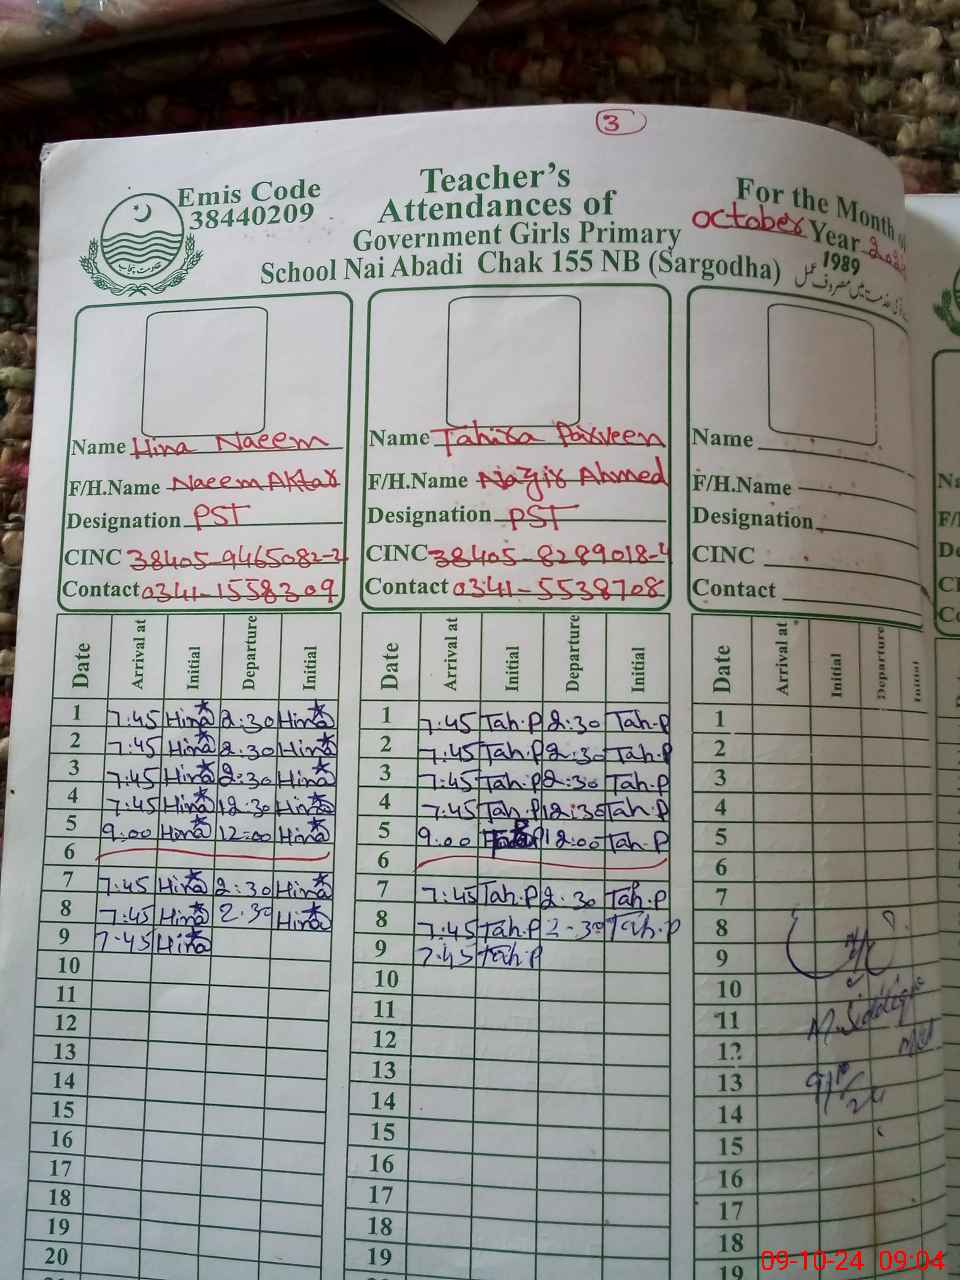 3
Emis Code
38440209
Teacher's
Attendances of
Government Girls Primary
School Nai Abadi Chak 155 NB (Sargodha)
For the Month of
October Year
1989
Name Hina Naeem
F/H.Name Naeem Aktar
Designation PST
CINC 38405-9465082-2
Contact 0341-1558309
Date Arrival at Initial Departure Initial
1 7:45 Hina 2:30 Hina
2 7:45 Hina 2:30 Hina
3 7:45 Hina 2:30 Hina
4 7:45 Hina 12:30 Hina
5 9:00 Hina 12:00 Hina
6
7 7:45 Hina 2:30 Hina
8 7:45 Hina 2:30 Hina
9 7:45 Hina
10
11
12
13
14
15
16
17
18
19
20
Name Tahira Parveen
F/H.Name Nazir Ahmed
Designation PST
CINC 38405-8289018-4
Contact 0341-5538708
Date Arrival at Initial Departure Initial
1 7:45 Tah.P 2:30 Tah.P
2 7:45 Tah.P 2:30 Tah.P
3 7:45 Tah.P 2:30 Tah.P
4 7:45 Tah.P 12:30 Tah.P
5 9:00 12:00 Tah.P
6
7 7:45 Tah.P 2:30 Tah.P
8 7:45 Tah.P 2:30 Tah.P
9 7:45 Tah.P
10
11
12
13
14
15
16
17
18
19
Name
F/H.Name
Designation
CINC
Contact
Date Arrival at Initial Departure Initial
1
2
3
4
5
6
7
8
9
10
11
12
13
14
15
16
17
18
19
M. Siddique
9/10/24
09-10-24 09:04